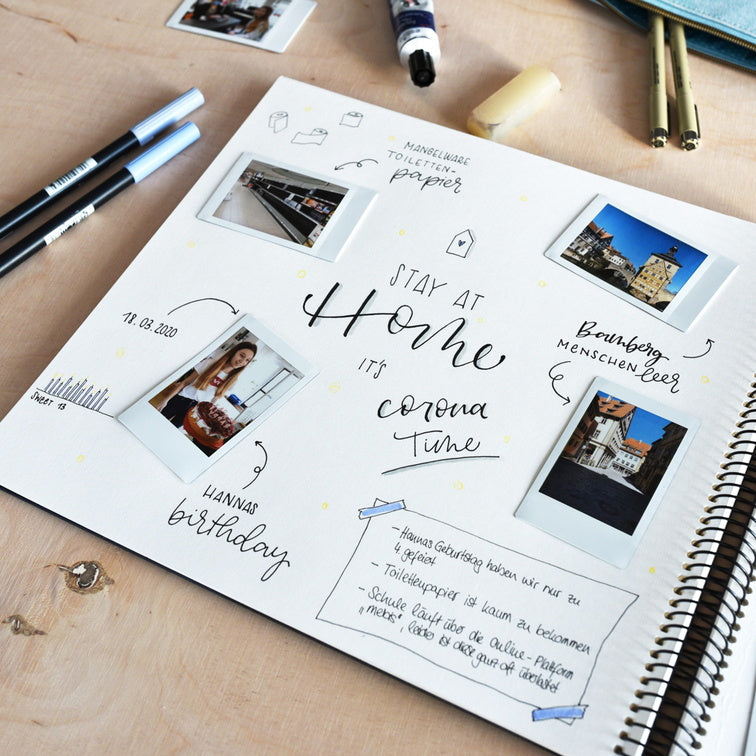 MANGELWARE
TOILETTEN-
papier
STAY AT
Home
IT'S
corona
Time
18.03.2020
SWEET 13
HANNAS
birthday
Bamberg
MENSCHEN
leer
- Hannas Geburtstag haben wir nur zu
4. gefeiert
- Toilettenpapier ist kaum zu bekommen
- Schule läuft über die Online-Plattform
„mebis“, leider ist diese ganz oft überlastet